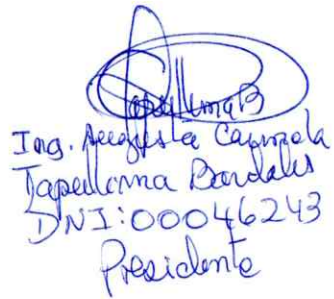 Ing. Augusta Carmela
Tapullima Bardales
DNI: 00046243
Presidente